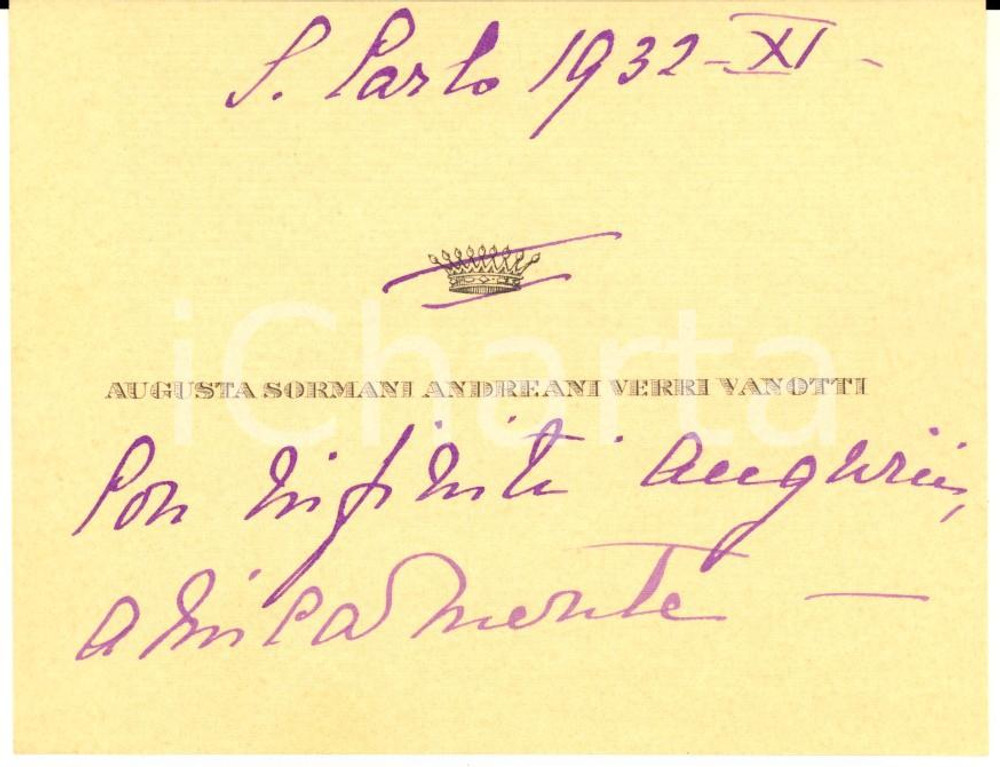 S. Carlo 1932 - XI -
AUGUSTA SORMANI ANDREANI VERRI VANOTTI
iCharta
Con infiniti auguri,
amicamente —